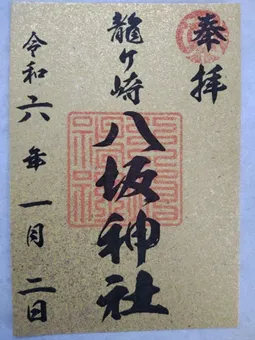 奉拝
龍ケ崎
八坂神社
令和六年一月二日